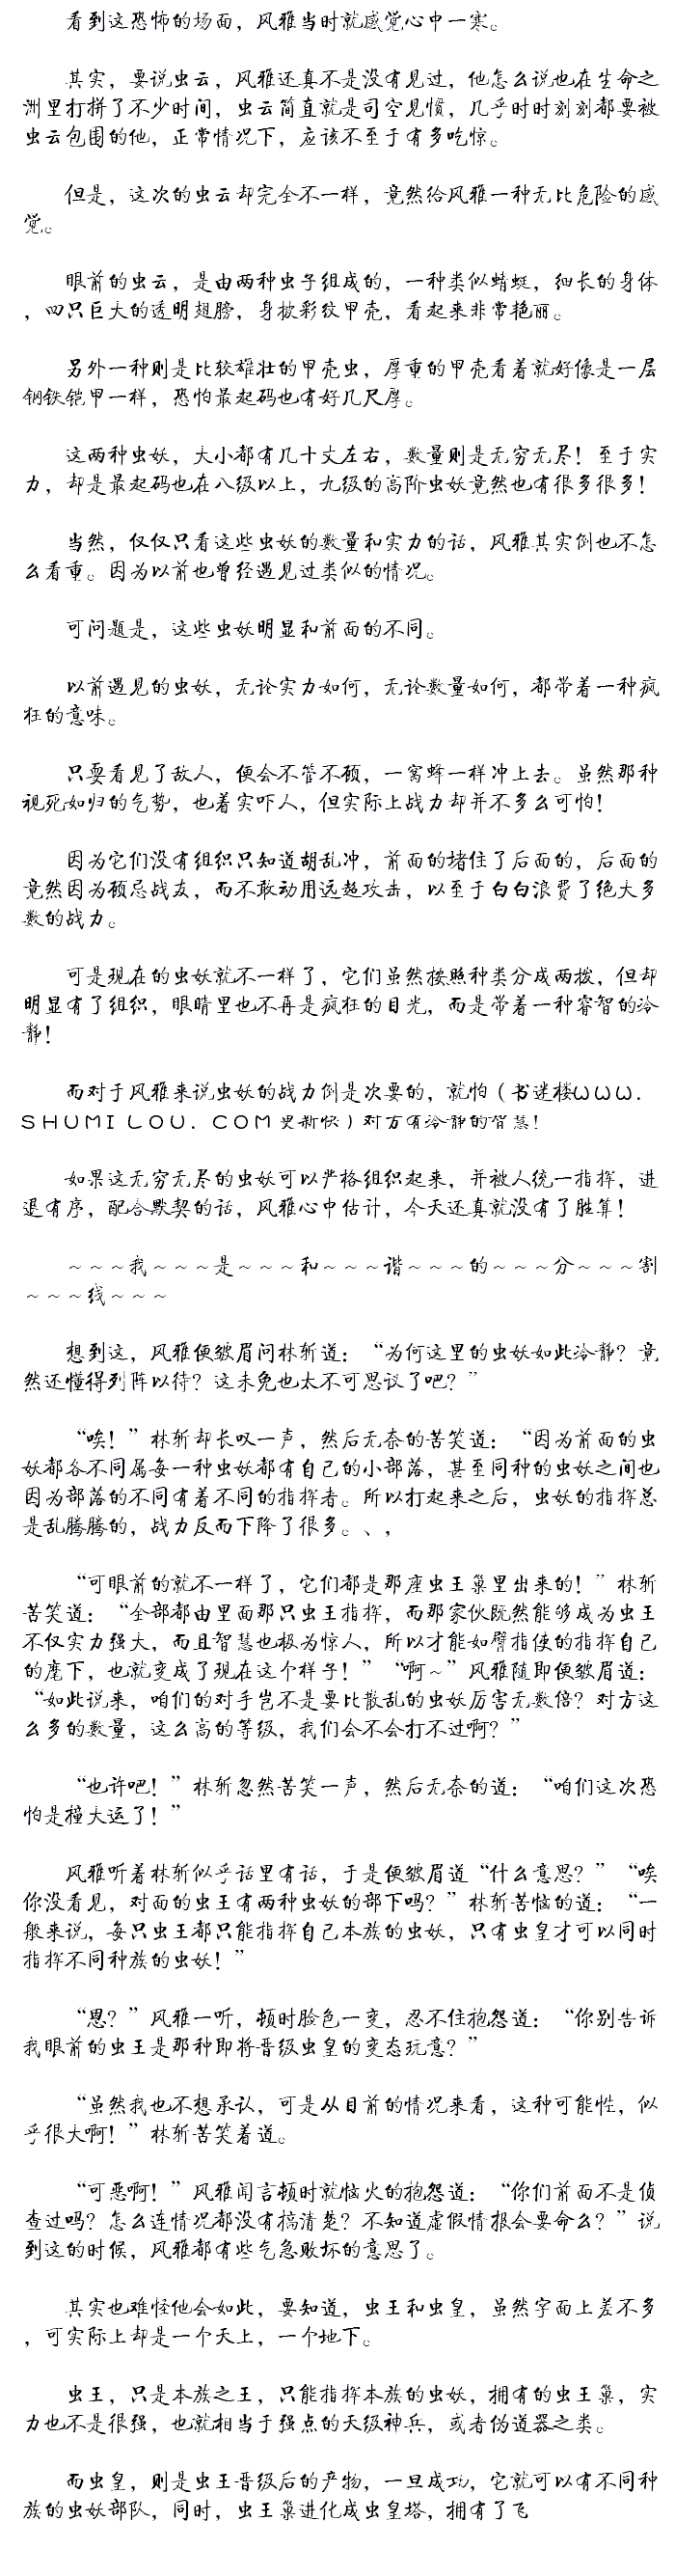 看到这恐怖的场面，风雅当时就感觉心中一寒。
其实，要说虫云，风雅还真不是没有见过，他怎么说也在生命之
洲里打拼了不少时间，虫云简直就是司空见惯，几乎时时刻刻都要被
虫云包围的他，正常情况下，应该不至于有多吃惊。
但是，这次的虫云却完全不一样，竟然给风雅一种无比危险的感
觉。
眼前的虫云，是由两种虫子组成的，一种类似蜻蜓，细长的身体
，四只巨大的透明翅膀，身披彩纹甲壳，看起来非常艳丽。
另外一种则是比较雄壮的甲壳虫，厚重的甲壳看着就好像是一层
钢铁铠甲一样，恐怕最起码也有好几尺厚。
这两种虫妖，大小都有几十丈左右，数量则是无穷无尽！至于实
力，却是最起码也在八级以上，九级的高阶虫妖竟然也有很多很多！
当然，仅仅只看这些虫妖的数量和实力的话，风雅其实倒也不怎
么看重。因为以前也曾经遇见过类似的情况。
可问题是，这些虫妖明显和前面的不同。
以前遇见的虫妖，无论实力如何，无论数量如何，都带着一种疯
狂的意味。
只要看见了敌人，便会不管不顾，一窝蜂一样冲上去。虽然那种
视死如归的气势，也着实吓人，但实际上战力却并不多么可怕！
因为它们没有组织只知道胡乱冲，前面的堵住了后面的，后面的
竟然因为顾忌战友，而不敢动用远超攻击，以至于白白浪费了绝大多
数的战力。
可是现在的虫妖就不一样了，它们虽然按照种类分成两拨，但却
明显有了组织，眼睛里也不再是疯狂的目光，而是带着一种睿智的冷
静！
而对于风雅来说虫妖的战力倒是次要的，就怕（书迷楼WWW．
SHUMILOU．COM更新快）对方有冷静的智慧！
如果这无穷无尽的虫妖可以严格组织起来，并被人统一指挥，进
退有序，配合默契的话，风雅心中估计，今天还真就没有了胜算！
～～～我～～～是～～～和～～～谐～～～的～～～分～～～割
～～～线～～～
想到这，风雅便皱眉问林斩道：“为何这里的虫妖如此冷静？竟
然还懂得列阵以待？这未免也太不可思议了吧？”
“唉！”林斩却长叹一声，然后无奈的苦笑道：“因为前面的虫
妖都各不同属每一种虫妖都有自己的小部落，甚至同种的虫妖之间也
因为部落的不同有着不同的指挥者。所以打起来之后，虫妖的指挥总
是乱腾腾的，战力反而下降了很多。、，
“可眼前的就不一样了，它们都是那座虫王巢里出来的！”林斩
苦笑道：“全部都由里面那只虫王指挥，而那家伙既然能够成为虫王
不仅实力强大，而且智慧也极为惊人，所以才能如臂指使的指挥自己
的麾下，也就变成了现在这个样子！”“啊～”风雅随即便皱眉道：
“如此说来，咱们的对手岂不是要比散乱的虫妖厉害无数倍？对方这
么多的数量，这么高的等级，我们会不会打不过啊？”
“也许吧！”林斩忽然苦笑一声，然后无奈的道：“咱们这次恐
怕是撞大运了！”
风雅听着林斩似乎话里有话，于是便皱眉道“什么意思？”“唉
你没看见，对面的虫王有两种虫妖的部下吗？”林斩苦恼的道：“一
般来说，每只虫王都只能指挥自己本族的虫妖，只有虫皇才可以同时
指挥不同种族的虫妖！”
“恩？”风雅一听，顿时脸色一变，忍不住抱怨道：“你别告诉
我眼前的虫王是那种即将晋级虫皇的变态玩意？”
“虽然我也不想承认，可是从目前的情况来看，这种可能性，似
乎很大啊！”林斩苦笑着道。
“可恶啊！”风雅闻言顿时就恼火的抱怨道：“你们前面不是侦
查过吗？怎么连情况都没有搞清楚？不知道虚假情报会要命么？”说
到这的时候，风雅都有些气急败坏的意思了。
其实也难怪他会如此，要知道，虫王和虫皇，虽然字面上差不多
，可实际上却是一个天上，一个地下。
虫王，只是本族之王，只能指挥本族的虫妖，拥有的虫王巢，实
力也不是很强，也就相当于强点的天级神兵，或者伪道器之类。
而虫皇，则是虫王晋级后的产物，一旦成功，它就可以有不同种
族的虫妖部队，同时，虫王巢进化成虫皇塔，拥有了飞